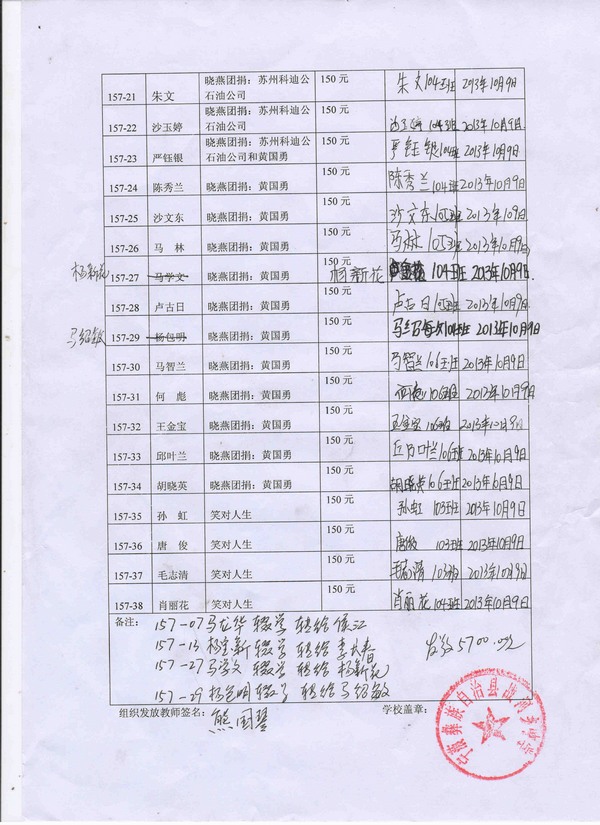 157-21 朱文 晓燕团捐：苏州科迪公石油公司 150 元 朱文 104班 2013年10月9日
157-22 沙玉婷 晓燕团捐：苏州科迪公石油公司 150 元 沙玉婷 104班 2013年10月9日
157-23 严钰银 晓燕团捐：苏州科迪公石油公司和黄国勇 150 元 严钰银 104班 2013年10月9日
157-24 陈秀兰 晓燕团捐：黄国勇 150 元 陈秀兰 104班 2013年10月9日
157-25 沙文东 晓燕团捐：黄国勇 150 元 沙文东 105班 2013年10月9日
157-26 马 林 晓燕团捐：黄国勇 150 元 马林 105班 2013年10月9日
杨新花 157-27 马学文 晓燕团捐：黄国勇 150 元 杨新花 104班 2013年10月9日
157-28 卢古日 晓燕团捐：黄国勇 150 元 卢古日 105班 2013年10月9日
马绍敏 157-29 杨包明 晓燕团捐：黄国勇 150 元 马绍敏 104班 2013年10月9日
157-30 马智兰 晓燕团捐：黄国勇 150 元 马智兰 106班 2013年10月9日
157-31 何 彪 晓燕团捐：黄国勇 150 元 何彪 106班 2013年10月9日
157-32 王金宝 晓燕团捐：黄国勇 150 元 王金宝 106班 2013年10月9日
157-33 邱叶兰 晓燕团捐：黄国勇 150 元 丘叶兰 106班 2013年10月9日
157-34 胡晓英 晓燕团捐：黄国勇 150 元 胡晓英 106班 2013年10月9日
157-35 孙 虹 笑对人生 150 元 孙虹 103班 2013年10月9日
157-36 唐 俊 笑对人生 150 元 唐俊 103班 2013年10月9日
157-37 毛志清 笑对人生 150 元 毛志清 103班 2013年10月9日
157-38 肖丽花 笑对人生 150 元 肖丽花 104班 2013年10月9日
备注：157-07 马龙华 辍学 转给 侯江
157-13 杨 新 辍学 转给 李 春 发放5700.元
157-27 马学文 辍学 转给 杨新花
157-29 杨包明 辍学 转给 马绍敏
组织发放教师签名：熊国 学校盖章：
宁蒗彝族自治县